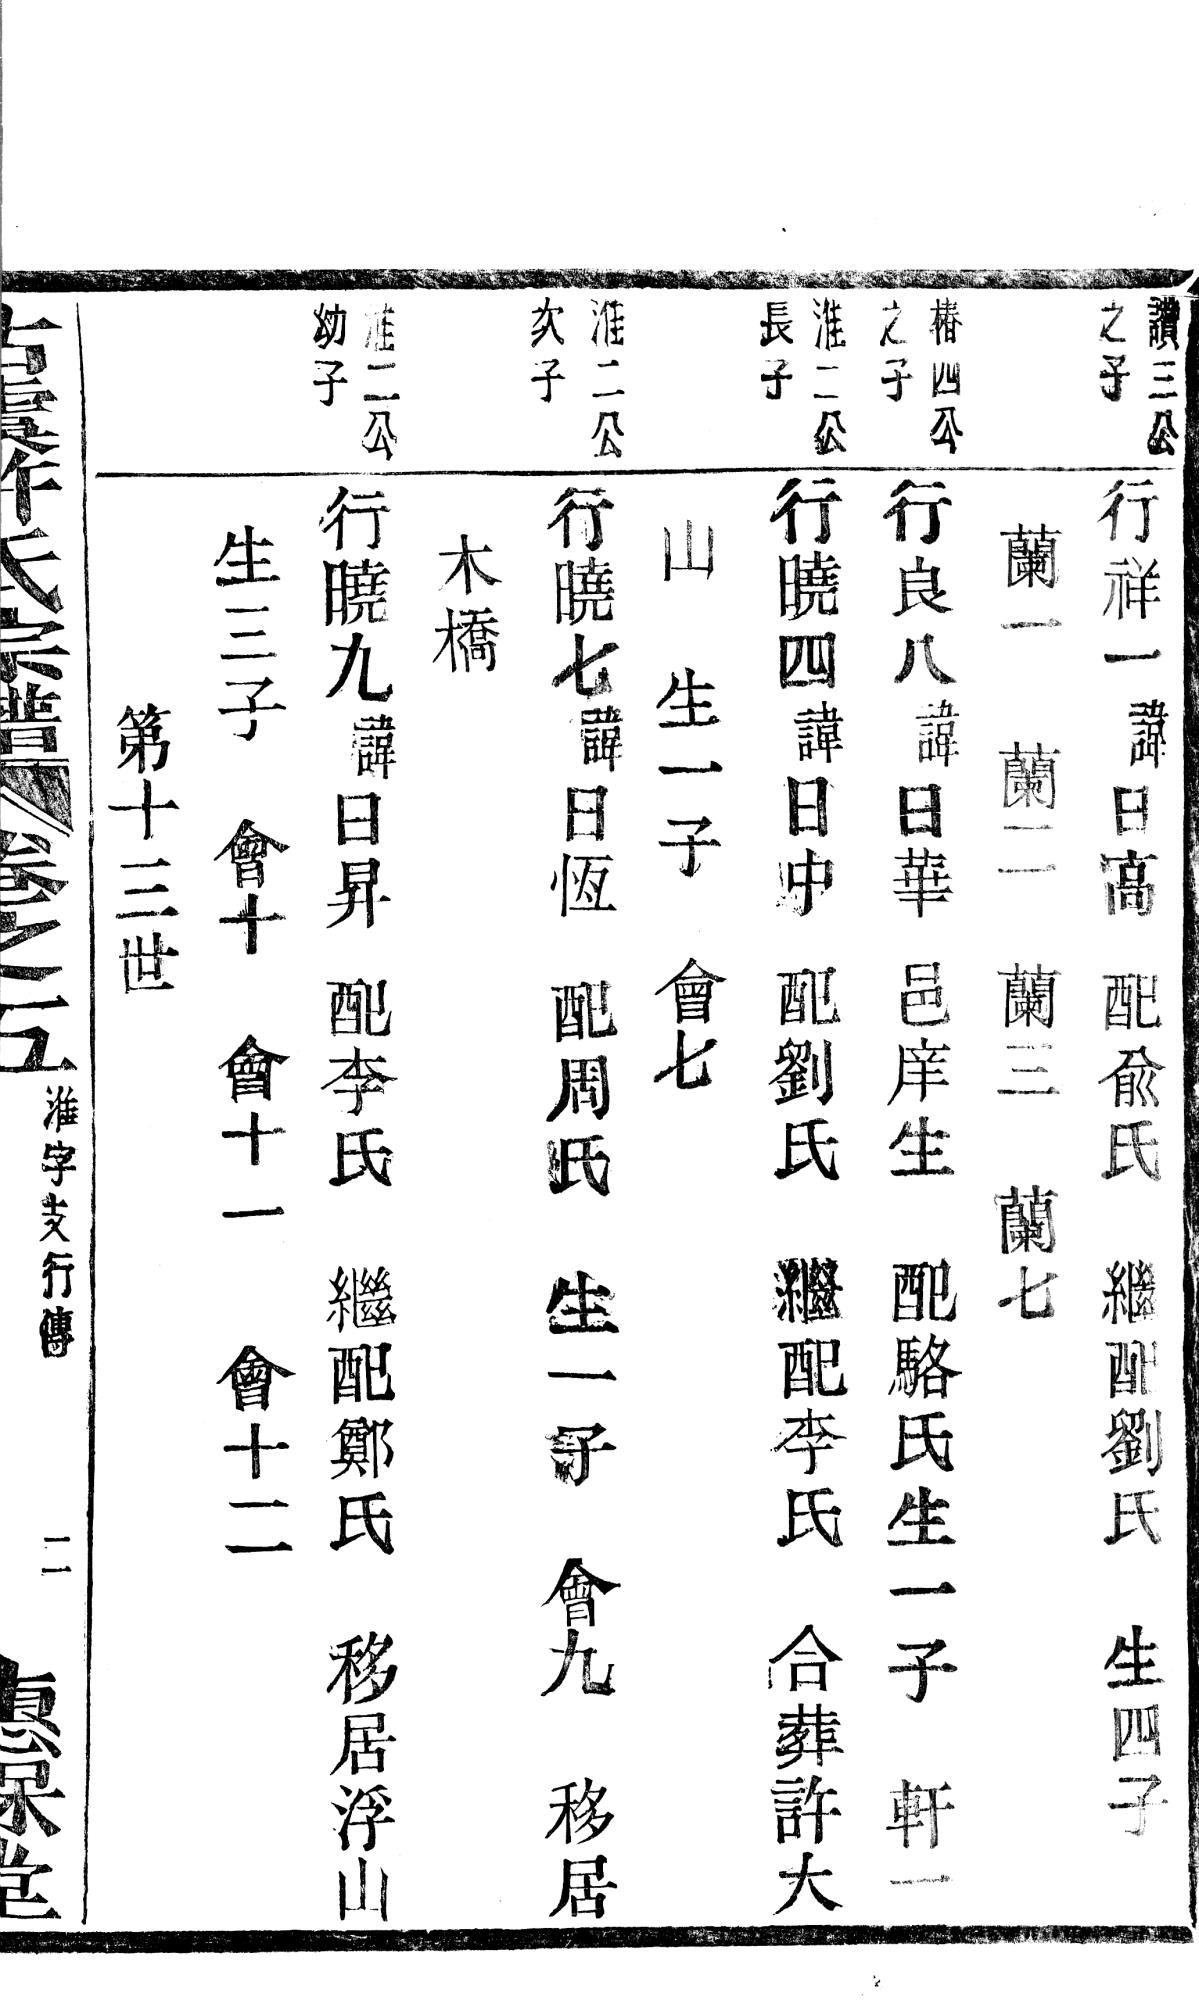 讚三公
之子
行祥一諱日高 配兪氏 繼配劉氏 生四子
蘭一 蘭二 蘭三 蘭七
椿四公
之子
行良八諱日華 邑庠生 配駱氏生一子 軒一
淮二公
長子
行曉四諱日中 配劉氏 繼配李氏 合葬許大
山 生一子 會七
淮二公
次子
行曉七諱日恆 配周氏 生一子 會九 移居
木橋
淮二公
幼子
行曉九諱日昇 配李氏 繼配鄭氏 移居浮山
生三子 會十 會十一 會十二
第十三世
許氏宗譜 卷之五
淮字支行傳
二
惠保堂